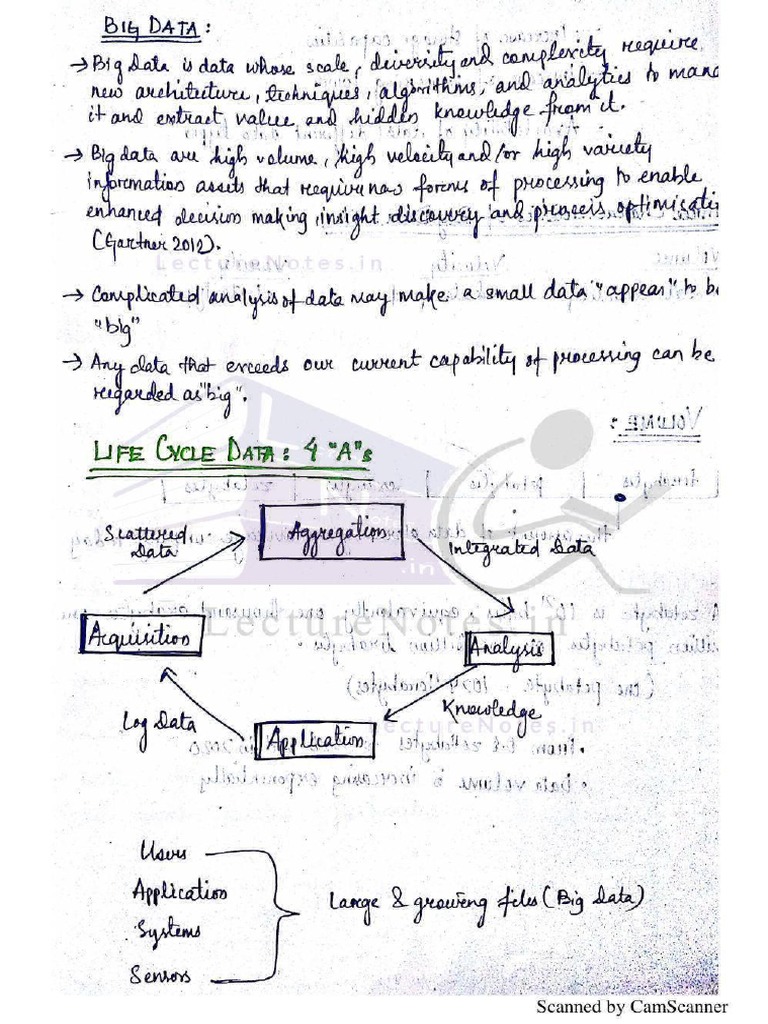 BIG DATA:
→ Big Data is data whose scale, diversity and complexity require
new architecture, techniques, algorithms, and analytics to mana
it and extract value and hidden knowledge from it.
→ Big data are high volume, high velocity and/or high variety
information assets that require new forms of processing to enable
enhanced decision making, insight discovery and process optimisati
(Gartner 2012).
LectureNotes.in
→ Complicated analysis of data may make a small data "appear" to be
"big"
→ Any data that exceeds our current capability of processing can be
regarded as "big".
LIFE CYCLE DATA: 4 "A"s
Scattered
Data
Aggregation
Integrated Data
Acquisition
LectureNotes.in
Analysis
Log Data
Application
Knowledge
LectureNotes.in
Users
Application
Systems
Sensors
Large & growing files (Big Data)
Scanned by CamScanner